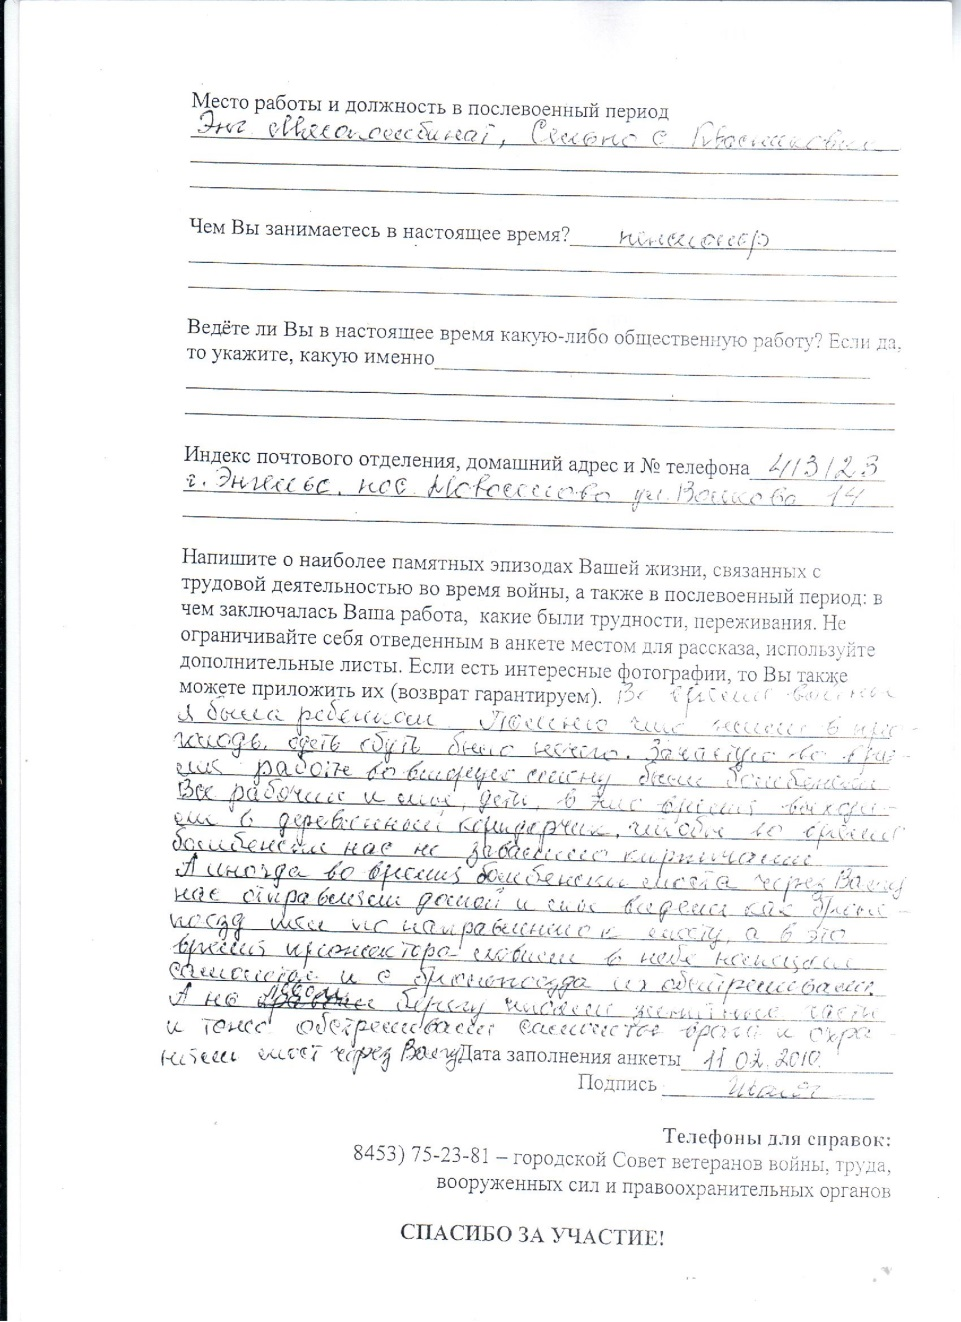 Место работы и должность в послевоенный период
Энг. Мясокомбинат,
Чем Вы занимаетесь в настоящее время? пенсионер
Ведёте ли Вы в настоящее время какую-либо общественную работу? Если да,
то укажите, какую именно
Индекс почтового отделения, домашний адрес и № телефона 413123
г. Энгельс. пос. ул. Волкова 14
Напишите о наиболее памятных эпизодах Вашей жизни, связанных с
трудовой деятельностью во время войны, а также в послевоенный период: в
чем заключалась Ваша работа, какие были трудности, переживания. Не
ограничивайте себя отведенным в анкете местом для рассказа, используйте
дополнительные листы. Если есть интересные фотографии, то Вы также
можете приложить их (возврат гарантируем). Во время войны
я была ребенком. Помню что
одеть обуть было нечего. Зачастую во вре-
мя работы во вторую смену были бомбежки
Все рабочие и мы, дети, в это время выходи-
ли в деревянный коридорчик, чтобы во время
бомбежки нас не завалило кирпичами
А иногда во время бомбежки моста через Волгу
нас отправляли домой и мы видели как броне-
поезд шел по направлению к мосту, а в это
время прожектора ловили в небе немецкие
самолеты и с бронепоезда их обстреливали.
А на левом берегу зенитные части
и тоже обстреливали самолеты врага и охра-
няли мост через Волгу Дата заполнения анкеты 11.02.2010.
Подпись
Телефоны для справок:
8453) 75-23-81 – городской Совет ветеранов войны, труда,
вооруженных сил и правоохранительных органов
СПАСИБО ЗА УЧАСТИЕ!